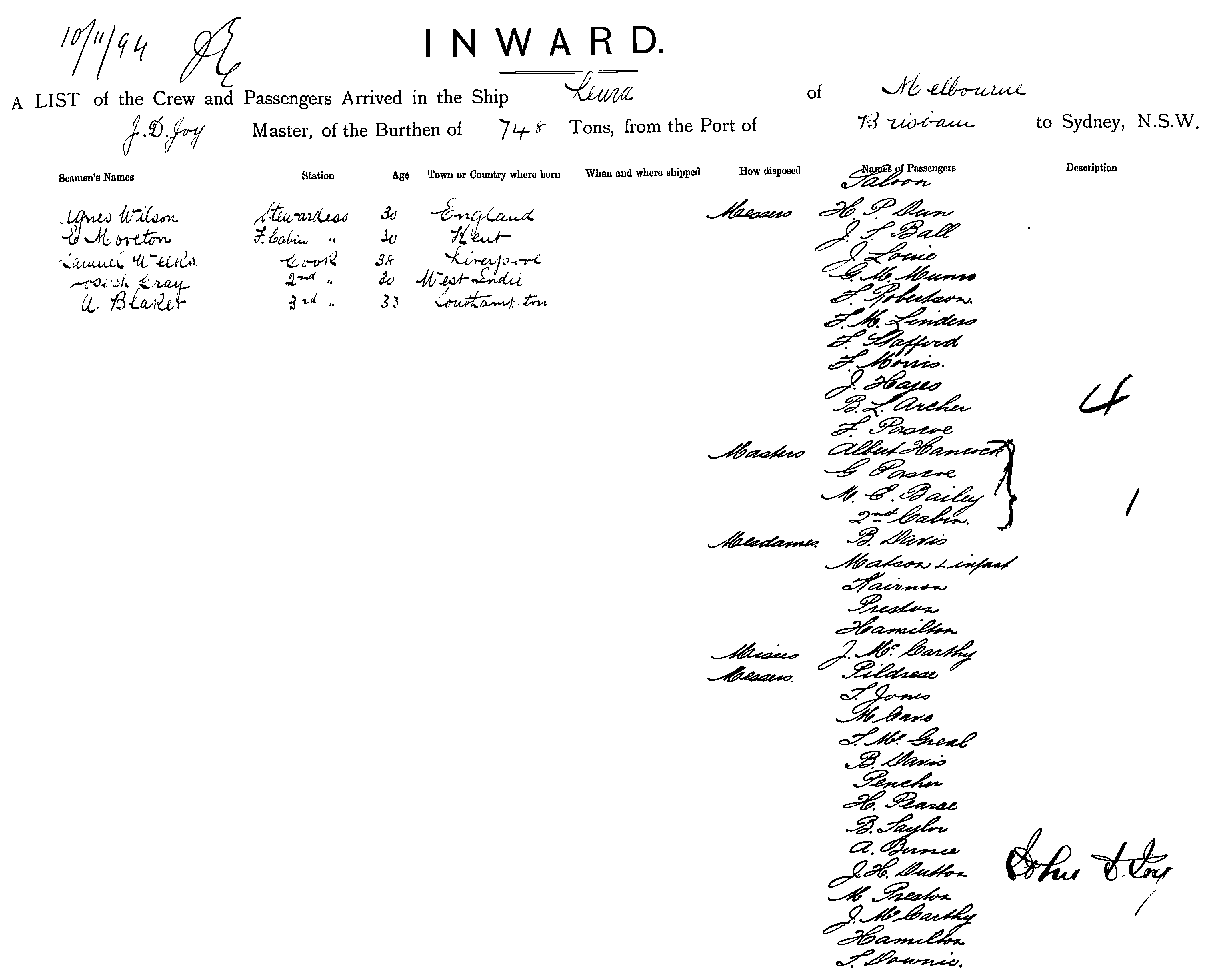 10/11/94
INWARD.
A LIST of the Crew and Passengers Arrived in the Ship Leura of Melbourne
J. D. Joy Master, of the Burthen of 748 Tons, from the Port of Brisbane to Sydney, N.S.W.
Seamen's Names Station Age Town or Country where born When and where shipped How disposed Names of Passengers Description
Saloon
Agnes Wilson Stewardess 30 England Messers H. P. Dun
E Moreton F. Cabin " 30 Kent J. S. Ball
Samuel Weeks Cook 38 Liverpool J. Louie
Gray 2nd " 30 West Indie G. M. Munro
A. Blaket 3rd " 33 Southampton F. Robertson.
F. M. Linders
F. Stafford
F. Morris.
J. Hayes
B. L. Archer 4
F. Pascoe
Masters Albert Hancock
G Pascoe
M. E. Bailey 1
2nd Cabin.
Mesdames. B. Davis
Matson & infant
Nairnon
Preston
Hamilton
Misses J. McCarthy
Messers.
T. Jones
M Cave
T. McGreal
B. Davis
Pencher
H. Pearse
B. Taylor
A. Bunce
J. H. Dutton John D. Joy
M Preston
J. McCarthy
Hamilton
T. Downie.